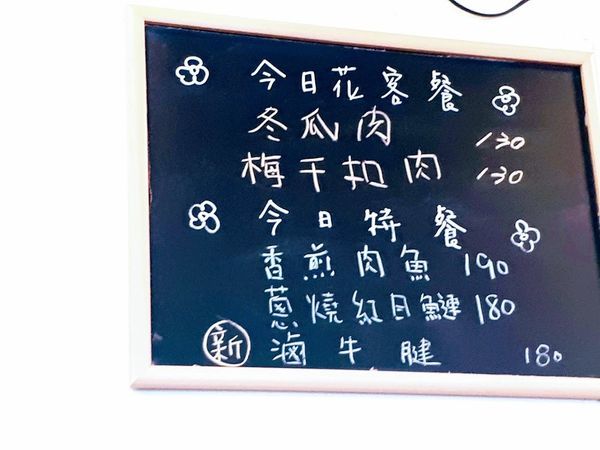 今日花客餐
冬瓜肉 130
梅干扣肉 130
今日特餐
香煎肉魚 190
蔥燒紅目鰱 180
新 滷牛腱 180